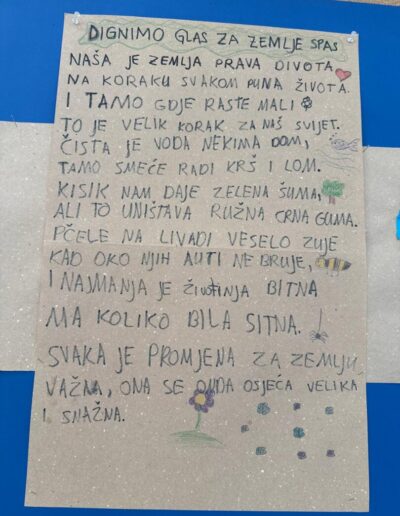 DIGNIMO GLAS ZA ZEMLJE SPAS
NAŠA JE ZEMLJA PRAVA DIVOTA
NA KORAKU SVAKOM PUNA ŽIVOTA.
I TAMO GDJE RASTE MALI
TO JE VELIK KORAK ZA NAŠ SVIJET.
ČISTA JE VODA NEKIMA DOM,
TAMO SMEĆE RADI KRŠ I LOM.
KISIK NAM DAJE ZELENA ŠUMA,
ALI TO UNIŠTAVA RUŽNA CRNA GUMA.
PČELE NA LIVADI VESELO ZUJE
KAD OKO NJIH AUTI NE BRUJE,
I NAJMANJA JE ŽIVOTINJA BITNA
MA KOLIKO BILA SITNA.
SVAKA JE PROMJENA ZA ZEMLJU
VAŽNA, ONA SE ONDA OSJEĆA VELIKA
I SNAŽNA.